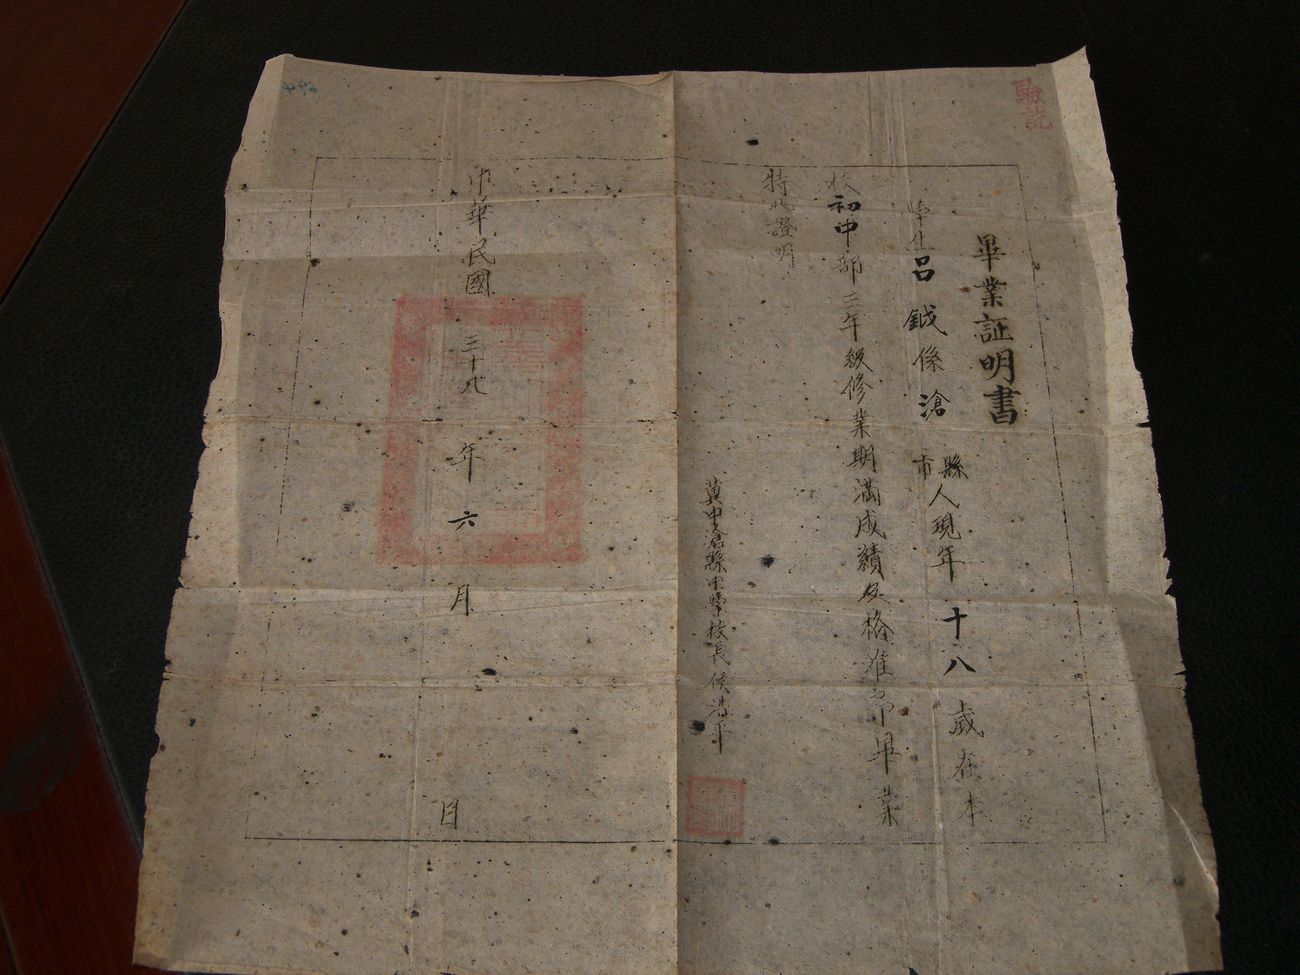 驗訖
畢業証明書
學生呂鉞係滄縣市人現年十八歲在本
校初中部三年級修業期滿成績及格准予畢業
特此證明
冀中滄縣中學校長侯
中華民國三十八年六月日